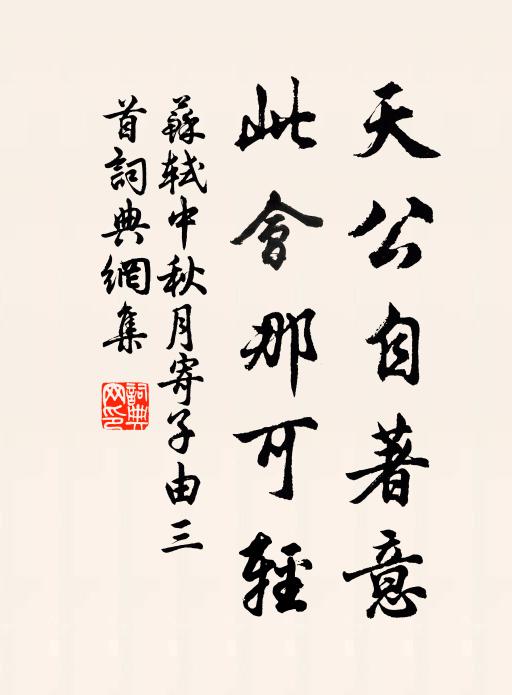 天公自著意
此會那可輕
蘇軾中秋月寄子由三
首詞典網集
詞典
网印